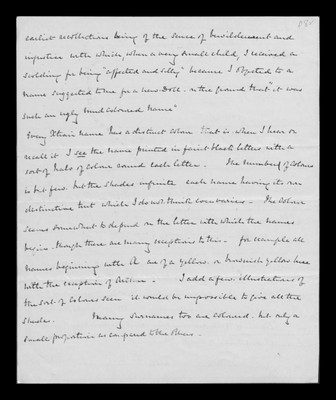 earliest recollections being of the sense of bewilderment and
injustice with which, when a very small child, I received a
scolding for being "affected and silly" because I objected to a
name suggested to me for a new Doll. on the ground that "it was
such an ugly mud coloured name"
Every Xtian name has a distinct colour that is when I hear or
recall it I see the name printed in faint black letters with a
sort of halo of colour round each letter. The number of colours
is but few. but the shades infinite each name having its own
distinctive tint which I do not think ever varies. The colour
seems somewhat to depend on the letter with which the names
begin. though there are many exceptions to this. for example all
names beginning with A are of a yellow. or brownish yellow hue
with the exception of I add a few illustrations of
the sort of colours seen it would be impossible to give all the
shades. Many surnames too are coloured. but only a
small proportion as compared to the others.